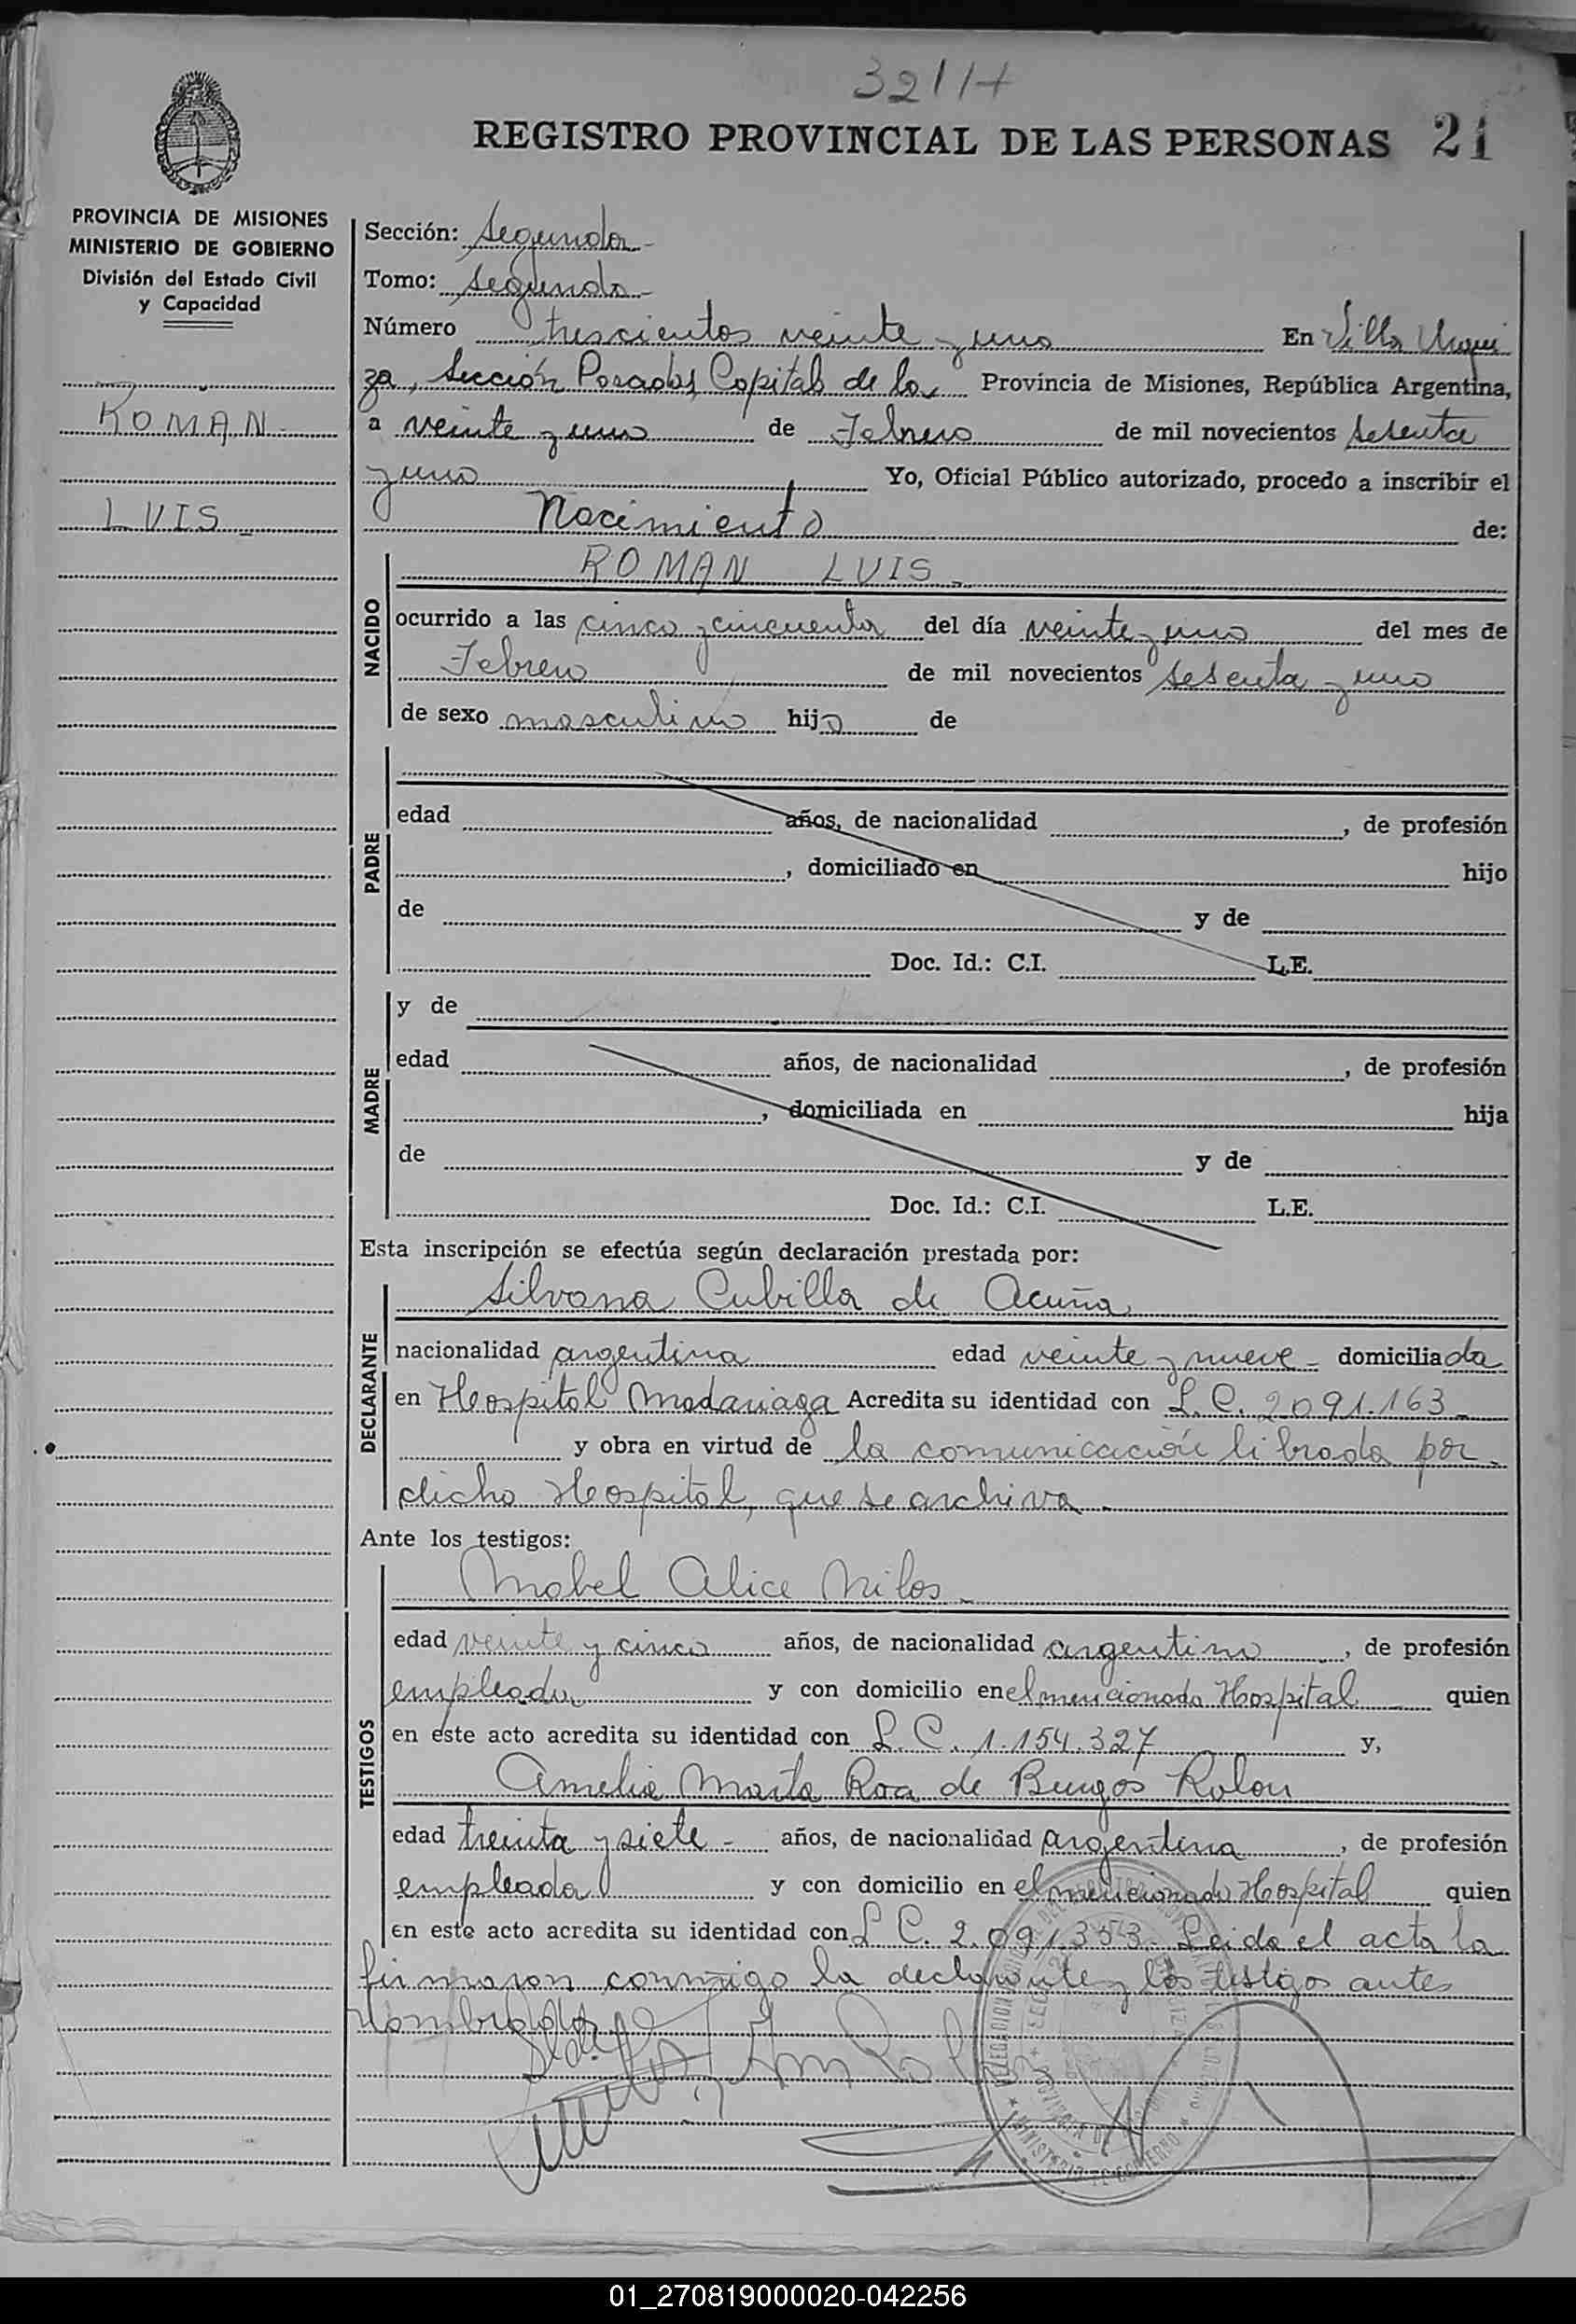 32114
REGISTRO PROVINCIAL DE LAS PERSONAS 21
PROVINCIA DE MISIONES
MINISTERIO DE GOBIERNO
División del Estado Civil
y Capacidad
ROMAN
LUIS
Sección: Segunda
Tomo: Segundo
Número trescientos veinte y uno En Villa Urqui
za, Sección Posadas Capital de la Provincia de Misiones, República Argentina,
a veinte y uno de Febrero de mil novecientos setenta
y uno Yo, Oficial Público autorizado, procedo a inscribir el
Nacimiento de:
NACIDO
ROMAN LUIS
ocurrido a las cinco y cincuenta del día veinte y uno del mes de
Febrero de mil novecientos setenta y uno
de sexo masculino hijo de
PADRE
edad años, de nacionalidad , de profesión
, domiciliado en hijo
de y de
Doc. Id.: C.I. L.E.
MADRE
y de
edad años, de nacionalidad , de profesión
, domiciliada en hija
de y de
Doc. Id.: C.I. L.E.
Esta inscripción se efectúa según declaración prestada por:
DECLARANTE
Silvana Cubilla de Acuña
nacionalidad argentina edad veinte y nueve - domiciliada
en Hospital Madariaga Acredita su identidad con L.C. 2.091.163
y obra en virtud de la comunicación librada por
dicho Hospital, que se archiva.
Ante los testigos:
TESTIGOS
Mabel Alice Milos
edad veinte y cinco años, de nacionalidad argentina , de profesión
empleada y con domicilio en el mencionado Hospital quien
en este acto acredita su identidad con L.C. 1.154.327 y,
Amelia Marta Roa de Burgos Rolon
edad treinta y siete - años, de nacionalidad argentina , de profesión
empleada y con domicilio en el mencionado Hospital quien
en este acto acredita su identidad con L C. 2.091.353. Leida el acta la
firmaron conmigo la declarante y los testigos antes
nombrados
01_270819000020-042256